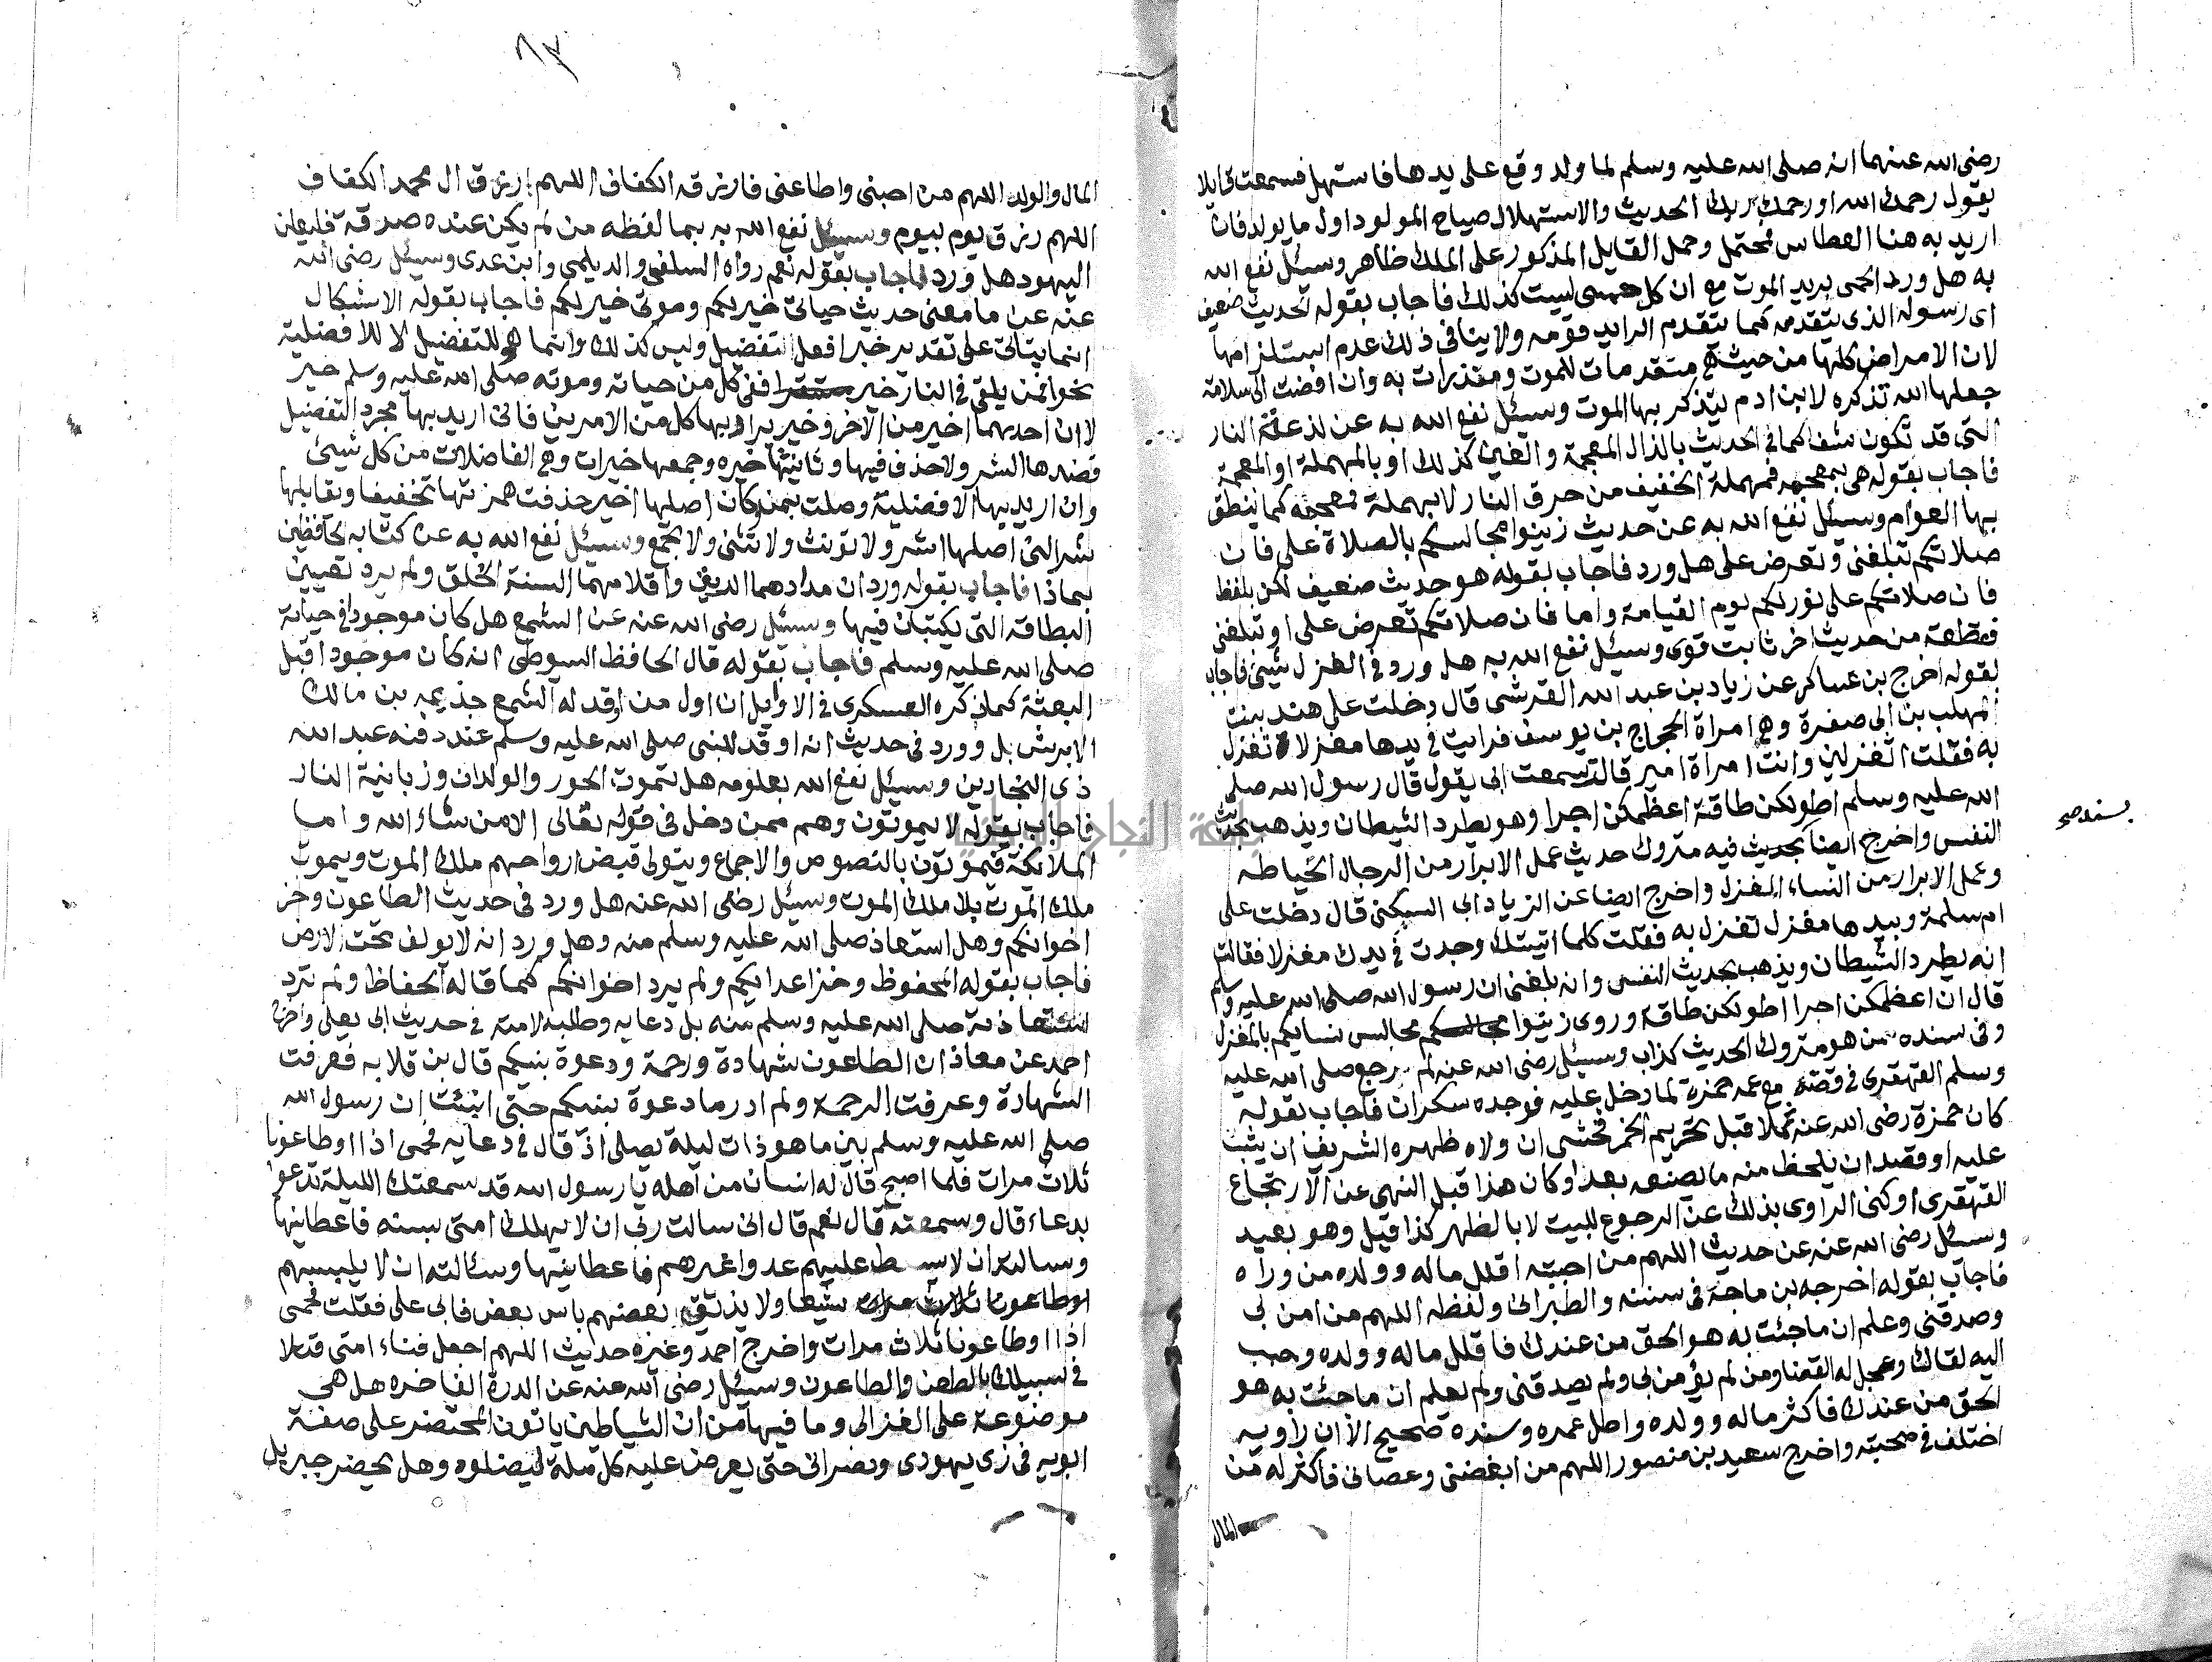 رضى الله عنهما انه صلى الله عليه وسلم لما ولد وقع على يدها فاستهل فسمعت قايلا
يقول رحمك الله او رحمك ربك الحديث والاستهلال صياح المولود اول ما يولد فان
اريد به هنا العطاس محتمل وحمل القايل المذكور على الملك ظاهر وسئل نفع الله
به هل ورد الحمى بريد الموت مع ان كل حمى ليست كذلك فاجاب بقوله الحديث ضعيف
اى رسوله الذى يتقدمه كما يتقدم الرايد قومه ولا ينافى ذلك عدم استلزامها
لان الامراض كلها من حيث هى متقدمات للموت ومنذرات به وان افضت الى سلامة
جعلها الله تذكره لابن ادم ليتذكر بها الموت وسئل نفع الله به عن لذعة النار
التى قد تكون شفا كما فى الحديث بالذال المعجمة والغين كذلك او بالمهملة او المعجمة
فاجاب بقوله هى بمعجمه فمهملة الخفيف من حرق النار لا بمهملة فمعجمه كما ينطق
بها العوام وسئل نفع الله به عن حديث زينوا مجالسكم بالصلاة على فان
صلاتكم تبلغنى وتعرض على هل ورد فاجاب بقوله هو حديث ضعيف لكن بلفظ
فان صلاتكم على نور لكم يوم القيامة واما فان صلاتكم تعرض على او تبلغنى
فقطعة من حديث اخر ثابت قوى وسئل نفع الله به هل ورد فى الغزل شيئ فاجاب
بقوله اخرج بن عساكر عن زياد بن عبد الله القرشى قال دخلت على هند بنت
المهلب بن ابى صفرة وهى امراة الحجاج بن يوسف فرايت فى يدها مغزلا تغزل
به فقلت اتغزلين وانت امراة امير قالت سمعت ابى يقول قال رسول الله صلى
الله عليه وسلم اطولكن طاقة اعظمكن اجرا وهو يطرد الشيطان ويذهب بحديث
النفس واخرج ايضا بحديث فيه متروك حديث عمل الابرار من الرجال الخياطه
وعمل الابرار من النساء المغزل واخرج ايضا عن الزياد ابى السكن قال دخلت على
ام سلمة وبيدها مغزل تغزل به فقلت كلما اتيتك وجدت فى يدك مغزلا فقالت
انه يطرد الشيطان ويذهب بحديث النفس وانه بلغنى ان رسول الله صلى الله عليه وسلم
قال ان اعظمكن اجرا اطولكن طاقة وروى زينوا مجالس نسايكم بالمغزل
وفى سنده من هو متروك الحديث كذاب وسئل رضى الله عنه لم رجع صلى الله عليه
وسلم القهقرى فى قصة مع عمه حمزة لما دخل عليه فوجده سكران فاجاب بقوله
كان حمزة رضى الله عنه ثملا قبل تحريم الخمر فخشى ان ولاه ظهره الشريف ان يثب
عليه او قصد ان يلحظ منه ما يصنعه بعد او كان هذا قبل النهى عن الارتجاع
القهقرى او كنى الراوى بذلك عن الرجوع للبيت لا بالظهر كذا قيل وهو بعيد
وسئل رضى الله عنه عن حديث اللهم من احببته اقلل ماله وولده من وراه
فاجاب بقوله اخرجه بن ماجة فى سننه والطبرانى ولفظه اللهم من امن بى
وصدقنى وعلم ان ما جئت به هو الحق من عندك فاقلل ماله وولده وحبب
اليه لقاك وعجل له القضا ومن لم يؤمن بى ولم يصدقنى ولم يعلم ان ما جئت به هو
الحق من عندك فاكثر ماله وولده واطل عمره وسنده صحيح الا ان راويه
اختلف فى صحبته واخرج سعيد بن منصور اللهم من ابغضنى وعصانى فاكثر له من
المال
المال والولد اللهم من احبنى واطاعنى فارزقه الكفاف اللهم ارزق ال محمد الكفاف
اللهم رزق يوم بيوم وسئل نفع الله به بما لفظه من لم يكن عنده صدقة فليلعن
اليهود هل ورد فاجاب بقوله نعم رواه السلفى والديلمى وابن عدى وسئل رضى الله
عنه عن ما معنى حديث حياتى خير لكم وموتى خير لكم فاجاب بقوله الاشكال
انما يتاتى على تقدير خير افعل التفضيل وليس كذلك وانما هو للتفضيل لا للافضلية
نحو افمن يلقى فى النار خير ففى كل من حياته وموته صلى الله عليه وسلم خير
لا ان احدهما اخير من الاخر وخير يراد بها كل من الامرين فانى اريد بها مجرد التفضيل
فضدها الشر ولا حذف فيها وثانيتها خيره وجمعها خيرات وهى الفاضلات من كل شيئ
وان اريد بها الافضلية وصلت بمن كان اصلها اخير حذفت همزتها تخفيفا ويقابلها
شر التى اصلها اشر ولا تونث ولا تثنى ولا تجمع وسئل نفع الله به عن كتابه الحافظين
بماذا فاجاب بقوله ورد ان مدادهما الريق واقلامهما السنة الخلق ولم يرد تعيين
البطاقة التى يكتبان فيها وسئل رضى الله عنه عن الشمع هل كان موجودا فى حياته
صلى الله عليه وسلم فاجاب بقوله قال الحافظ السيوطى انه كان موجودا قبل
البعثة كما ذكره العسكرى فى الاوايل ان اول من اوقد له الشمع جذيمه بن مالك
الابرش بل وورد فى حديث انه اوقد للنبى صلى الله عليه وسلم عند دفنه عبد الله
ذى البجادين وسئل نفع الله بعلومه هل تموت الحور والولدان وزبانية النار
فاجاب بقوله لا يموتون وهم ممن دخل فى قوله تعالى الا من شاء الله واما
الملائكة فيموتون بالنصوص والاجماع ويتولى قبض ارواحهم ملك الموت ويموت
ملك الموت بلا ملك الموت وسئل رضى الله عنه هل ورد فى حديث الطاعون وخز
اخوانكم وهل استعاذ صلى الله عليه وسلم منه وهل ورد انه لا يولف تحت الارض
فاجاب بقوله المحفوظ وخز اعدائكم ولم يرد اخوانكم كما قاله الحفاظ ولم ترد
استعاذته صلى الله عليه وسلم منه بل دعا به وطلبه لامته فى حديث ابى يعلى واخرج
احمد عن معاذ ان الطاعون شهادة ورحمة ودعوة نبيكم قال بن قلابه فعرفت
الشهادة وعرفت الرحمة ولم ادر ما دعوة نبيكم حتى انبئت ان رسول الله
صلى الله عليه وسلم بين ما هو ذات ليلة يصلى اذ قال فى دعايه فحمى اذا او طاعونا
ثلاث مرات فلما اصبح قال له انسان من اهله يا رسول الله قد سمعتك الليلة تدعو
بدعاء قال وسمعته قال نعم قال انى سالت ربى ان لا يهلك امتى بسنه فاعطانيها
وسالته ان لا يسلط عليهم عدوا غيرهم فاعطانيها وسئالته ان لا يلبسهم
شيعا ولا يذيق بعضهم باس بعض فابى على فقلت فحمى
اذا او طاعونا ثلاث مرات واخرج احمد وغيره حديث اللهم اجعل فناء امتى قتلا
فى سبيلك بالطعن والطاعون وسئل رضى الله عنه عن الدرة الفاخره هل هى
موضوعة على الغزالى وما فيها من ان الشياطين ياتون المحتضر على صفة
ابويه فى زى يهودى ونصرانى حتى يعرض عليه كل ملة ليضلوه وهل يحضر جبريل